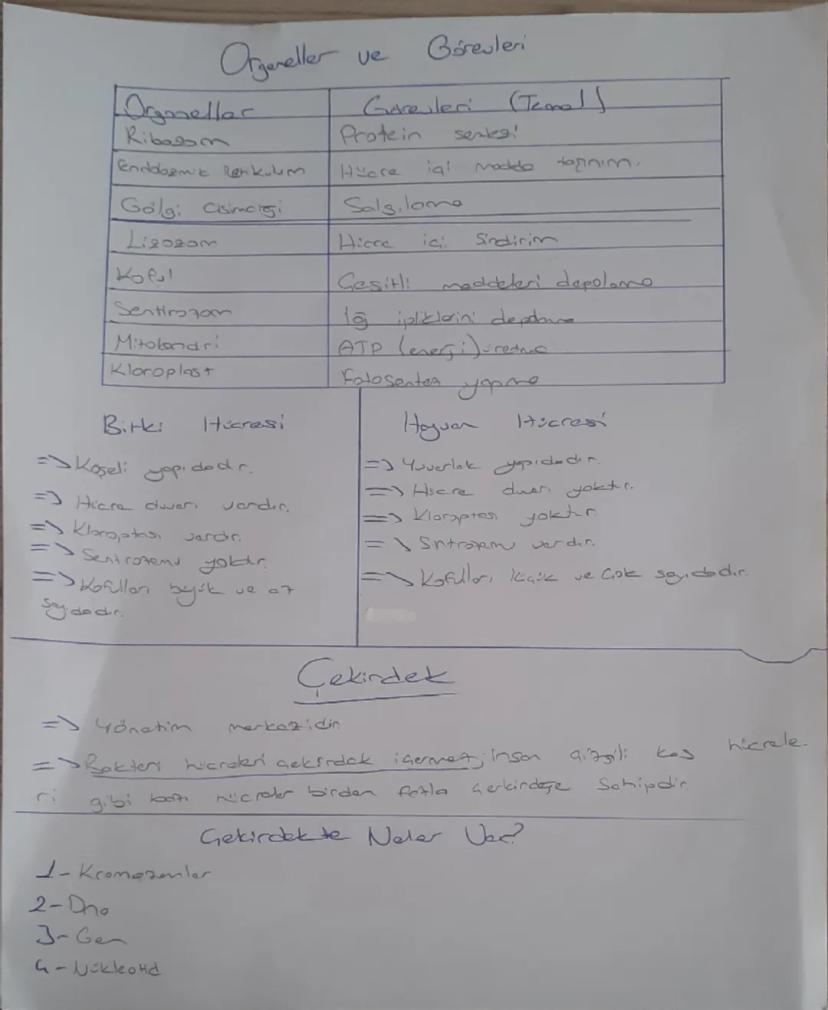 Organeller ve Görevleri
Organeller Görevleri (Temel)
Ribozom Protein sentezi
Endoplazmik Retikulum Hücre içi madde taşınım.
Golgi Cisimciği Salgılama
Lizozom Hücre içi Sindirim
Koful Çeşitli maddeleri depolama
Sentrozom İğ ipliklerini
Mitokondri ATP (enerji) üretme
Kloroplast Fotosentez yapma
Bitki Hücresi
=> Köşeli yapıdadır.
=> Hücre duvarı vardır.
=> Kloroplastı vardır.
=> Sentrozomu yoktur.
=> Kofulları büyük ve az
sayıdadır.
Hayvan Hücresi
=> Yuvarlak yapıdadır.
=> Hücre duvarı yoktur.
=> Kloroplastı yoktur
=> Sntrozomu vardır.
=> Kofulları küçük ve çok sayıdadır.
Çekirdek
=> Yönetim merkezidir
=> Bakteri hücreleri çekirdek içermez, insan çizgili kas hücrele-
ri gibi bazı hücreler birden fazla çerkirdeğe Sahipdir.
Çekirdekte Neler Var?
1- Kromozomlar
2- Dna
3- Gen
4- Nükleotid